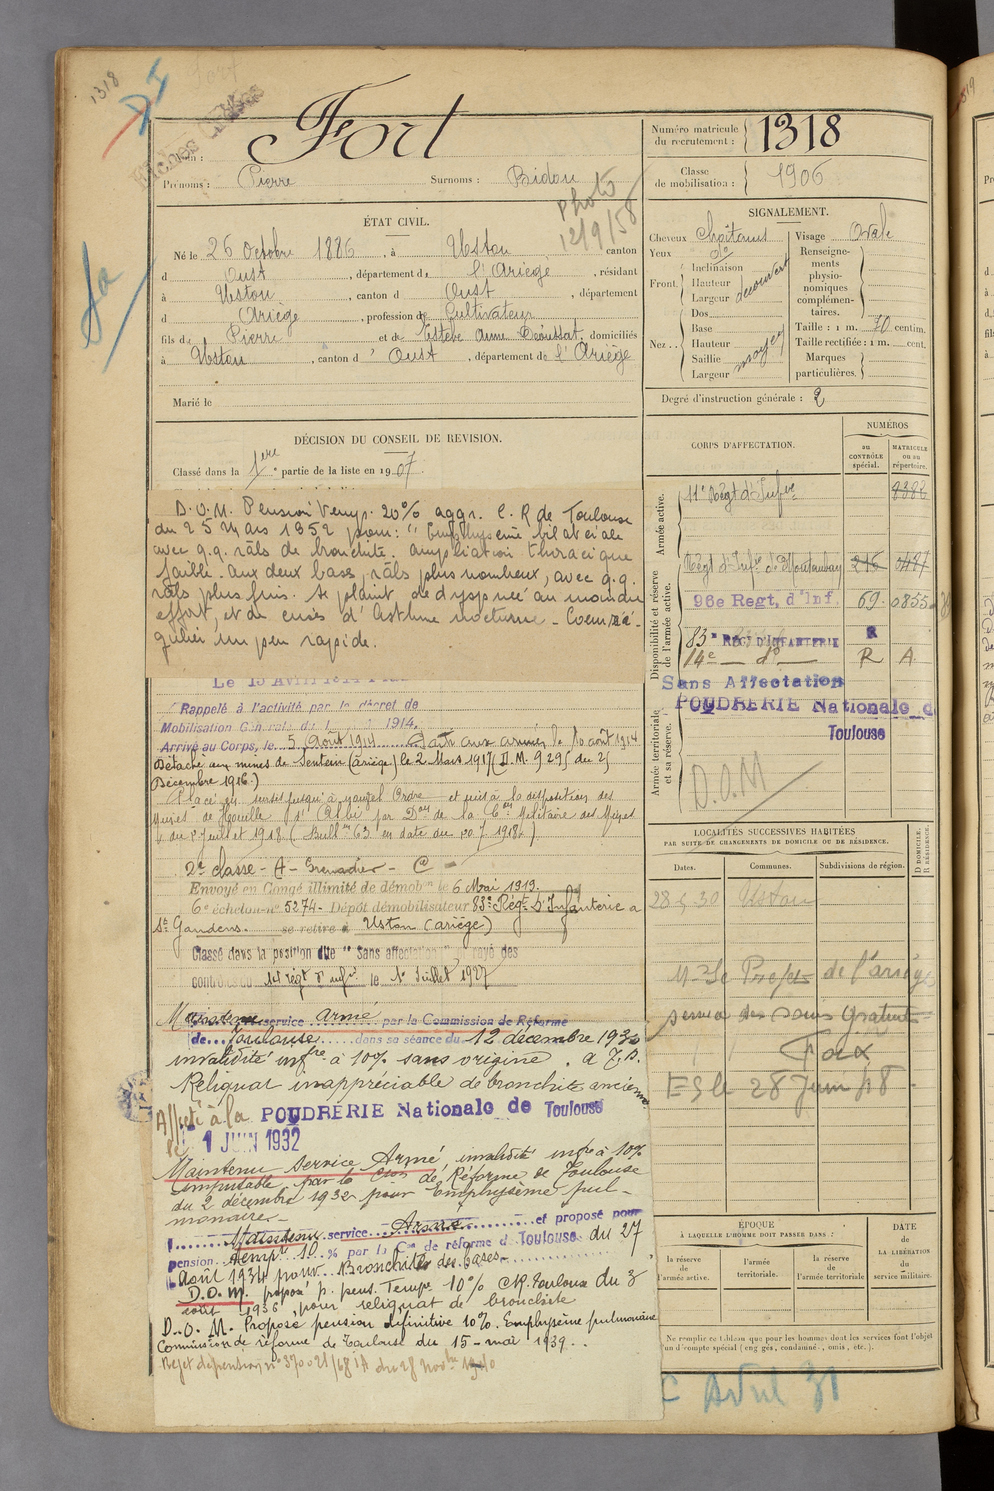 1318
Fort
Nom :
Prénoms : Pierre Surnoms : Bidou
Photo
12/9/58
Numéro matricule
du recrutement : 1318
Classe
de mobilisation : 1906
ÉTAT CIVIL.
Né le 26 Octobre 1886, à Ustou canton
d Oust, département de l'Ariège, résidant
à Ustou, canton d Oust, département
d Ariège, profession de Cultivateur
fils de Pierre et de Estève Anne domiciliés
à Ustou, canton d'Oust, département de l'Ariège
Marié le
SIGNALEMENT.
Cheveux Châtains
Yeux do
Front. Inclinaison
Hauteur
Largeur découvert
Nez.. Dos
Base
Hauteur
Saillie
Largeur moyen
Visage Ovale
Renseigne-
ments
physio-
nomiques
complémen-
taires.
Taille : 1 m. 70 centim.
Taille rectifiée : 1 m. cent.
Marques
particulières.
Degré d'instruction générale : 2
DÉCISION DU CONSEIL DE REVISION.
Classé dans la 1ere partie de la liste en 1907
D.O.M. Pension Temp. 20% aggr. C.R de Toulouse
du 25 Mars 1952 pour : "Emphysème bilatérale
avec q.q. râls de bronchite. ampliation thoracique
faible. Aux deux bases, râls plus nombreux, avec q.q.
râls plus fins. Se plaint de dyspnée au moindre
effort, et de crises d'asthme nocturne - Coeur
un peu rapide.
Rappelé à l'activité par le décret de
Mobilisation Générale du 1 1914.
Arrivé au Corps, le 5 Août 1914 Parti aux armées le 10 août 1914
Détaché aux mines de Sentein (Ariège) le 2 Mars 1917 (D.M. 9295 du 25
Décembre 1916.)
Placé en sursis jusqu'à nouvel Ordre et mis à la disposition des
Mines de Houille d'Albi par Don de la Con Militaire des Mines
du Juillet 1918 (Bullin 63 en date du 20 7 1918)
2e classe - A - Grenadier - C
Envoyé en Congé illimité de démobon le 6 Mai 1919.
6e échelon no 5274 - Dépôt démobilisateur 83e Régt D'Infanterie a
St Gaudens. se retire à Ustou (ariège)
Classé dans la position dite "Sans affectation", rayé des
contrôles du 14e régt d'infie le 1er Juillet 1927
Maintenu service armé par la Commission de Réforme
de Toulouse dans sa séance du 12 décembre 1930
invalidité infre à 10% sans origine.
Reliquat inappréciable de bronchite ancienne
Affecté à la POUDRERIE Nationale de Toulouse
le 1 JUIN 1932
Maintenu Service Armé, invalidité infre à 10%
imputable par la Con de Réforme de Toulouse
du 2 décembre 1932 pour Emphysème pul-
monaire.
Maintenu service Armé et proposé pour
pension Tempre 10 % par la Con de réforme d Toulouse du 27
Août 1934 pour Bronchite des bases.
D.O.M. proposé p. pens. Tempe 10% CR. Toulouse du 3
août 1936, pour reliquat de bronchite
D.O.M. Propose pension définitive 10%. Emphysème pulmonaire
Commission de réforme de Toulouse du 15 mai 1939.
Rejet de pension no
CORPS D'AFFECTATION.
NUMÉROS
au
CONTRÔLE
spécial.
MATRICULE
ou au
répertoire.
Armée active.
11e Régt d'Infie 8382
Disponibilité et réserve
de l'armée active.
Régt d'Infie de Montauban 216 0487
96e Regt. d'Inf. 69 0855
83e REGt D'INFANTERIE R
14e — do — R A
Sans Affectation
POUDRERIE Nationale d
Toulouse
Armée territoriale
et sa réserve.
D.O.M
LOCALITÉS SUCCESSIVES HABITÉES
PAR SUITE DE CHANGEMENTS DE DOMICILE OU DE RÉSIDENCE.
Dates. Communes. Subdivisions de région. D DOMICILE. R RÉSIDENCE.
28 5 30 Ustou
Mr Le Préfet de l'ariège
Soins Gratuits
ES le 28 Juin 48
ÉPOQUE
À LAQUELLE L'HOMME DOIT PASSER DANS :
la réserve
de
l'armée active.
l'armée
territoriale.
la réserve
de
l'armée territoriale
DATE
de
LA LIBÉRATION
du
service militaire.
Ne remplir ce tableau que pour les hommes dont les services font l'objet
d'un décompte spécial (engagés, condamnés, omis, etc.).
C Avril 31